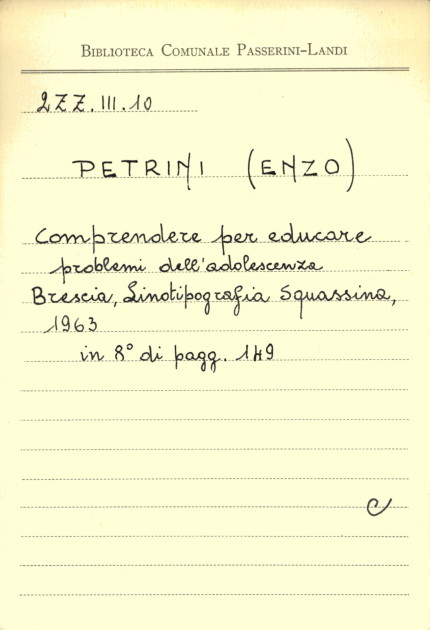 BIBLIOTECA COMUNALE PASSERINI-LANDI
2ZZ.III.10
PETRINI (ENZO)
Comprendere per educare
problemi dell'adolescenza
Brescia, Linotipografia Squassina,
1963
in 8° di pagg. 149
C